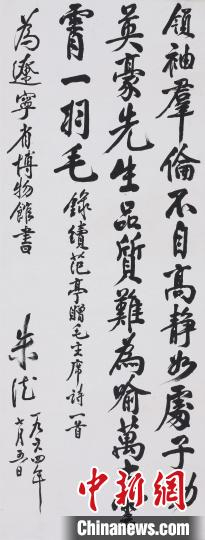 領袖羣倫不自高静如處子動
英豪先生品質難為喻萬古雲
霄一羽毛
錄續范亭贈毛主席詩一首
為遼寧省博物館書
朱德
一九六四年
七月五日
中新網
Chinanews.com